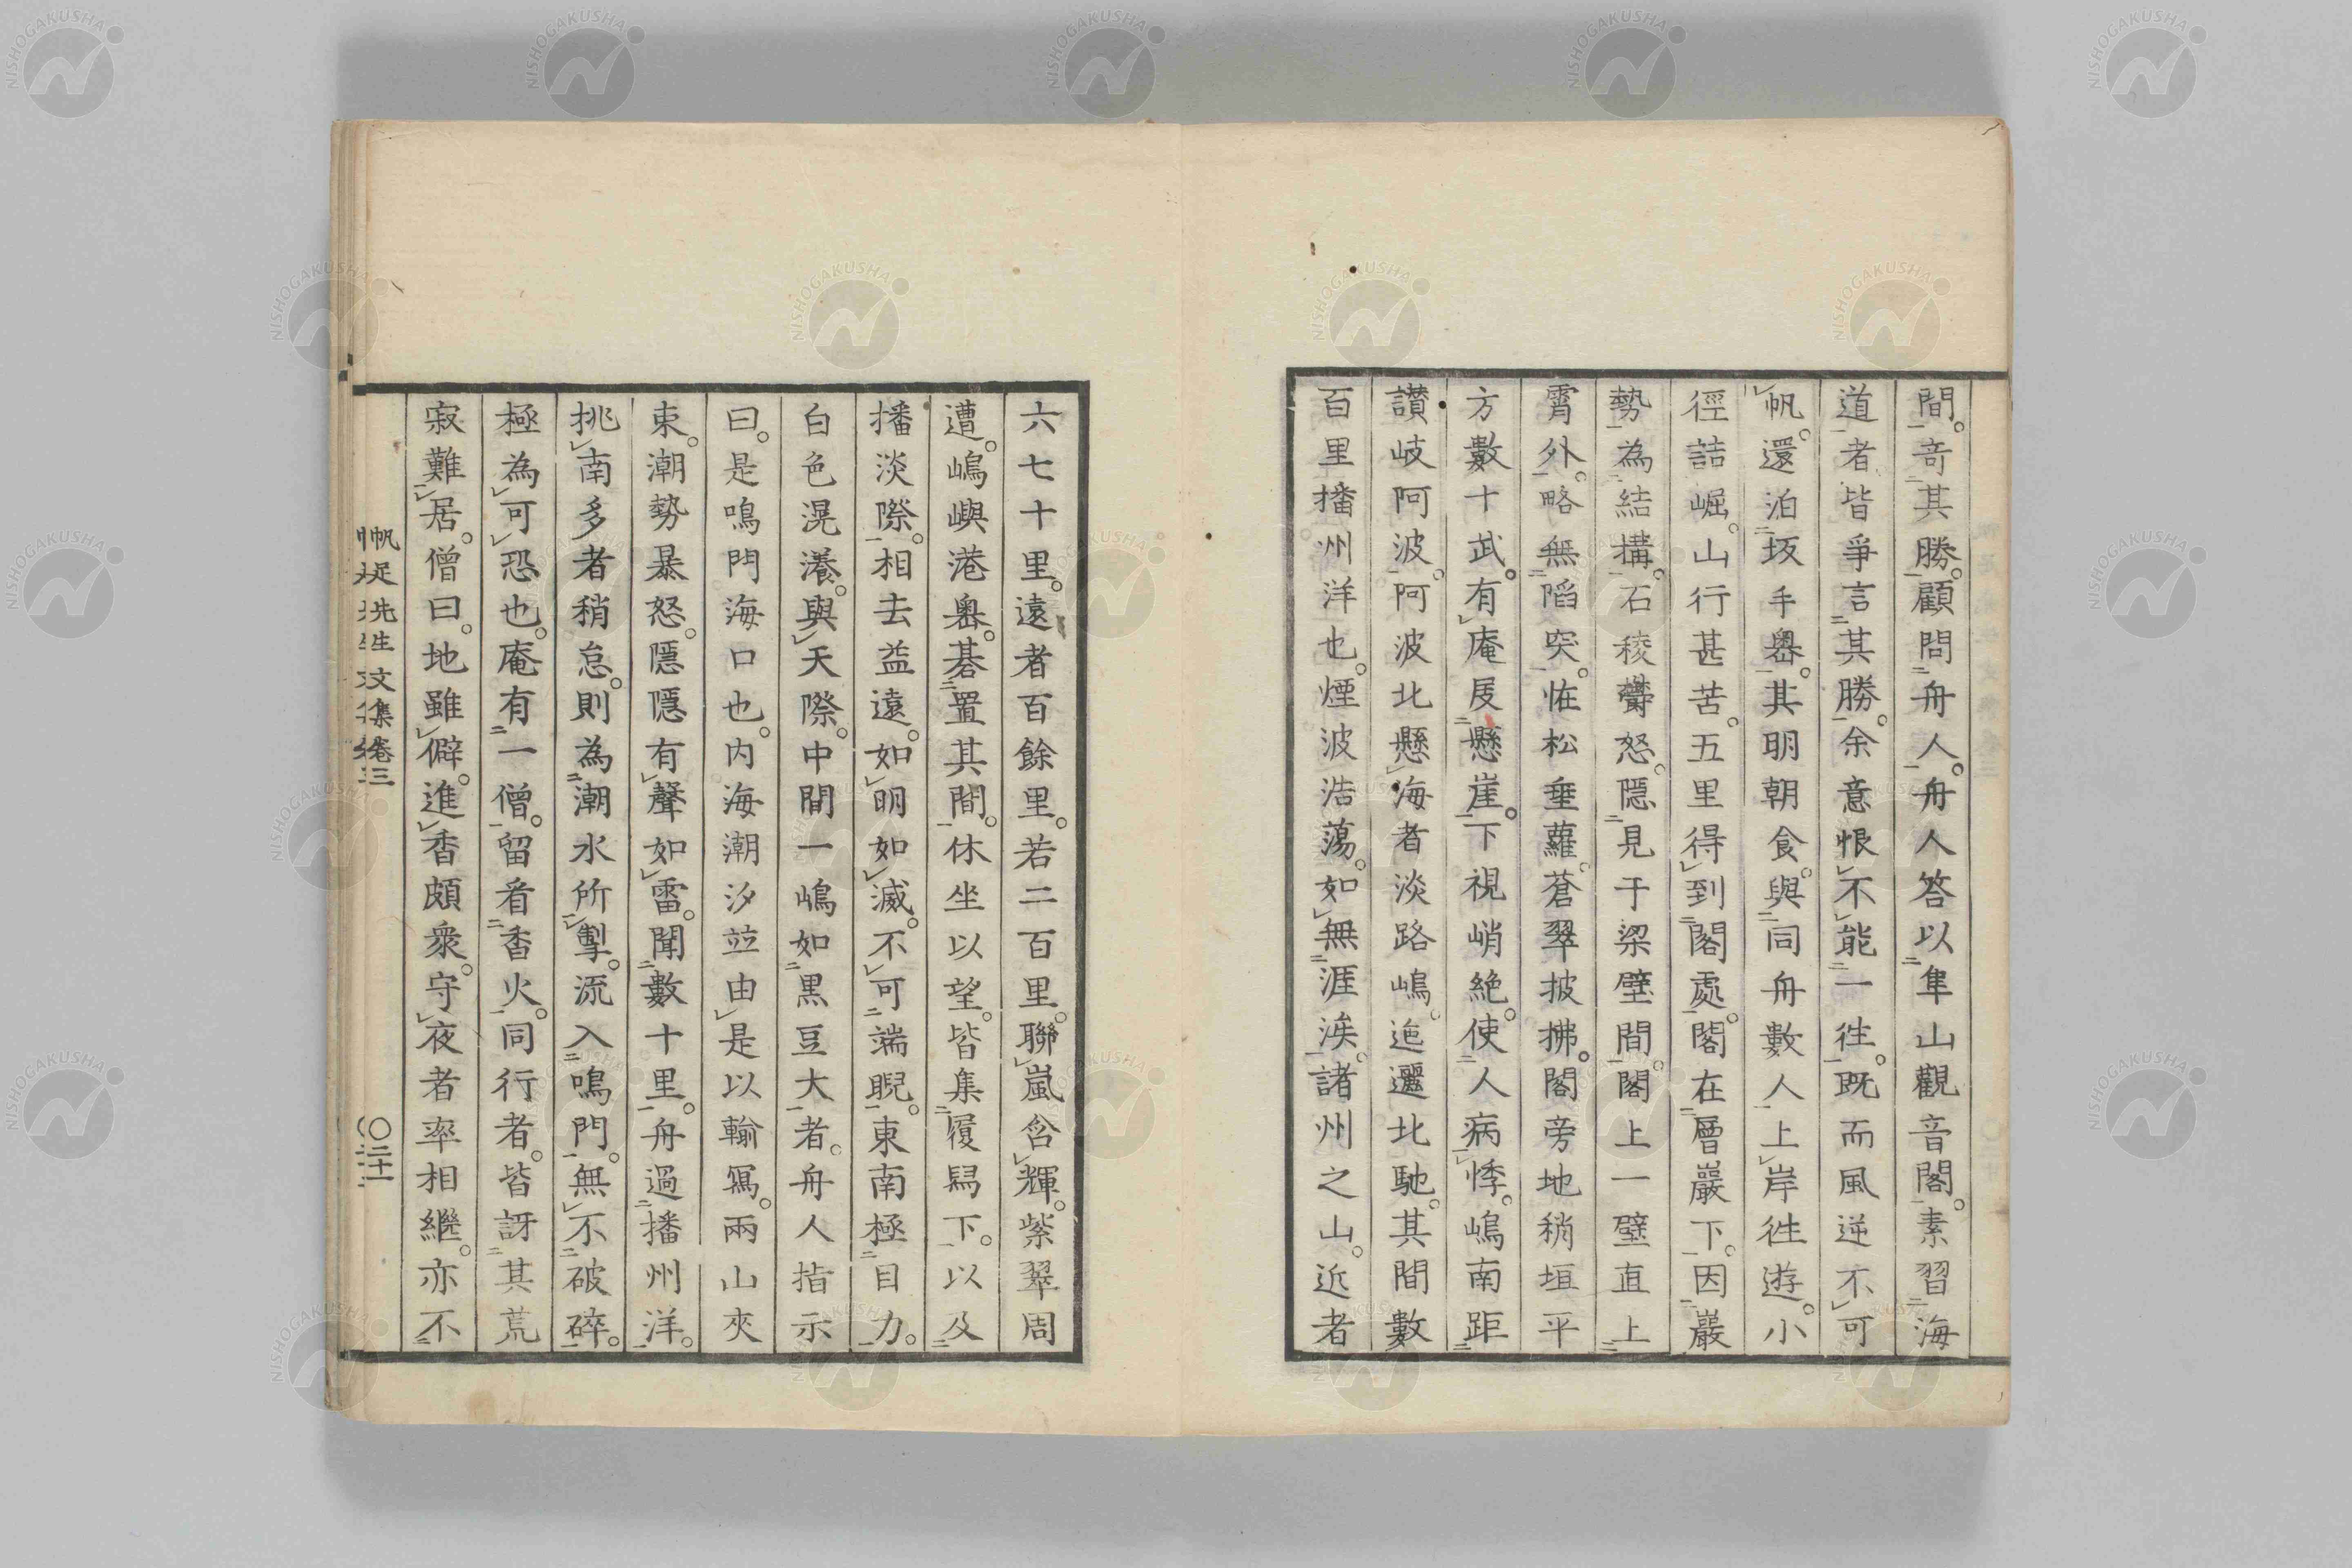 間。竒其勝。顧問舟人。舟人答以隼山觀音閣。素習海
道者皆爭言其勝。余意恨不能一徃。既而風逆不可
帆。還泊坂手嶴。其明朝食。與同舟數人上岸徃遊。小
徑詰崛。山行甚苦。五里得到閣處。閣在層巖下。因巖
勢為結構。石稜欝怒。隱見于梁壁間。閣上一壁直上
霄外。略無陷突。恠松垂蘿。蒼翠披拂。閣旁地稍垣平
方數十武。有庵。庋懸崖。下視峭絶。使人病悸。嶋南距
讃岐阿波。阿波北懸海者淡路嶋。迤邐北馳。其間數
百里播州洋也。煙波浩蕩。如無涯涘。諸州之山。近者
六七十里。遠者百餘里。若二百里。聯嵐含輝。紫翠周
遭。嶋嶼港嶴。碁置其間。休坐以望。皆集履舄下。以及
播淡際。相去益遠。如明如滅。不可端睨。東南極目力。
白色滉瀁。與天際。中間一嶋如黒豆大者。舟人指示
曰。是鳴門海口也。内海潮汐竝由是以輸寫。兩山夾
束。潮勢暴怒。隱隱有聲如雷。聞數十里。舟過播州洋。
挑南多者稍怠。則為潮水所掣。流入鳴門。無不破碎。
極為可恐也。庵有一僧。留看香火。同行者。皆訝其荒
寂難居。僧曰。地雖僻。進香頗衆。守夜者率相繼。亦不
帆足先生文集卷三
〇二十一
NISHOGAKUSHA